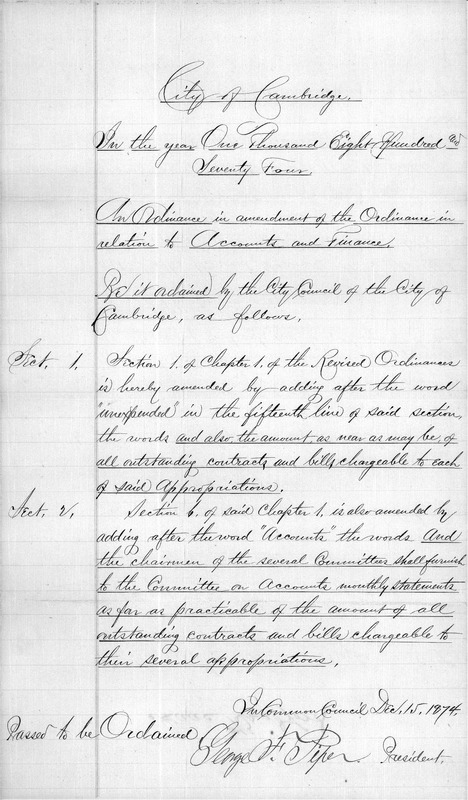 City of Cambridge.
In the year One Thousand Eight Hundred and
Seventy Four.
An Ordinance in amendment of the Ordinance in
relation to Accounts and Finance.
Be it ordained by the City Council of the City of
Cambridge, as follows.
Sect. 1. Section 1. of Chapter 1. of the Revised Ordinances
is hereby amended by adding after the word
"unexpended" in the fifteenth line of said section,
the words and also, the amount, as near as may be, of
all outstanding contracts, and bills, chargeable to each
of said Appropriations.
Sect. 2. Section 6. of said Chapter 1. is also amended by
adding after the word "Accounts" the words And
the chairmen of the several Committees shall furnish
to the Committee on Accounts monthly statements
as far as practicable of the amount of all
outstanding contracts and bills chargeable to
their several appropriations.
In Common Council Dec. 15. 1874.
Passed to be Ordained
George F. Piper. President.